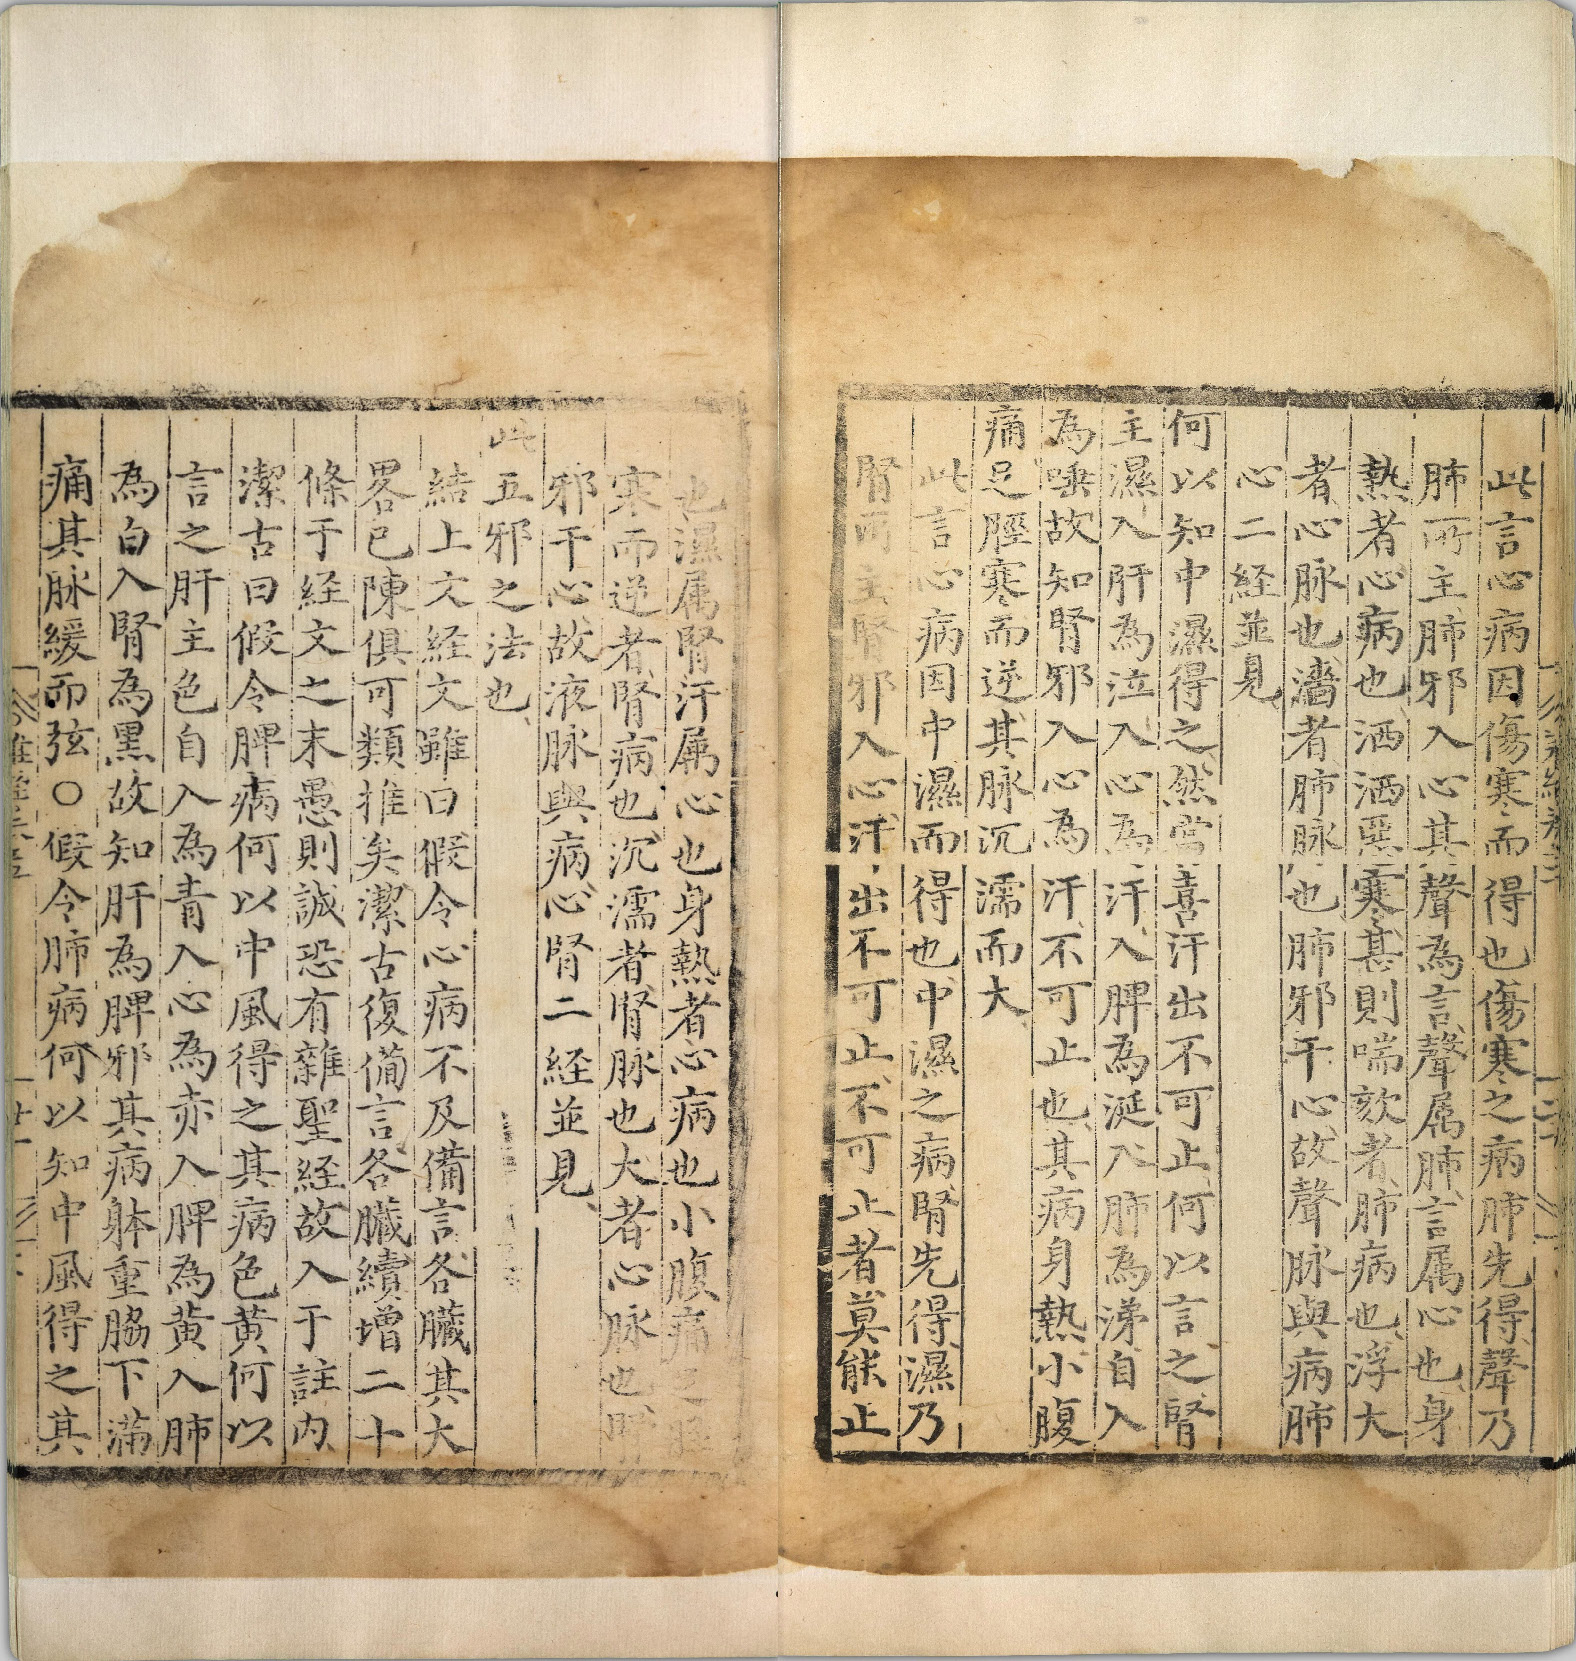 此言心病因傷寒而得也傷寒之病肺先得聲乃
肺所主肺邪入心其聲為言聲属肺言属心也身
熱者心病也洒洒惡寒甚則喘欬者肺病也浮大
者心脉也濇者肺脉也肺邪干心故聲脉與病肺
心二経並見
何以知中濕得之然當喜汗出不可止何以言之腎
主濕入肝為泣入心為汗入脾為涎入肺為涕自入
為唾故知腎邪入心為汗不可止也其病身熱小腹
痛足脛寒而逆其脉沉濡而大
此言心病因中濕而得也中濕之病腎先得濕乃
腎所主腎邪入心汗出不可止不可止者莫能止
也濕属腎汗属心也身熱者心病也小腹痛足脛
寒而逆者腎病也沉濡者腎脉也大者心脉也腎
邪干心故液脉與病心腎二経並見
此五邪之法也
結上文経文雖曰假令心病不及備言各臟其大
畧已陳俱可類推矣潔古復備言各臟續增二十
條于経文之末愚則誠恐有雜聖経故入于註内
潔古曰假令脾病何以中風得之其病色黄何以
言之肝主色自入為青入心為赤入脾為黄入肺
為白入腎為黒故知肝為脾邪其病躰重脇下滿
痛其脉緩而弦〇假令肺病何以知中風得之其